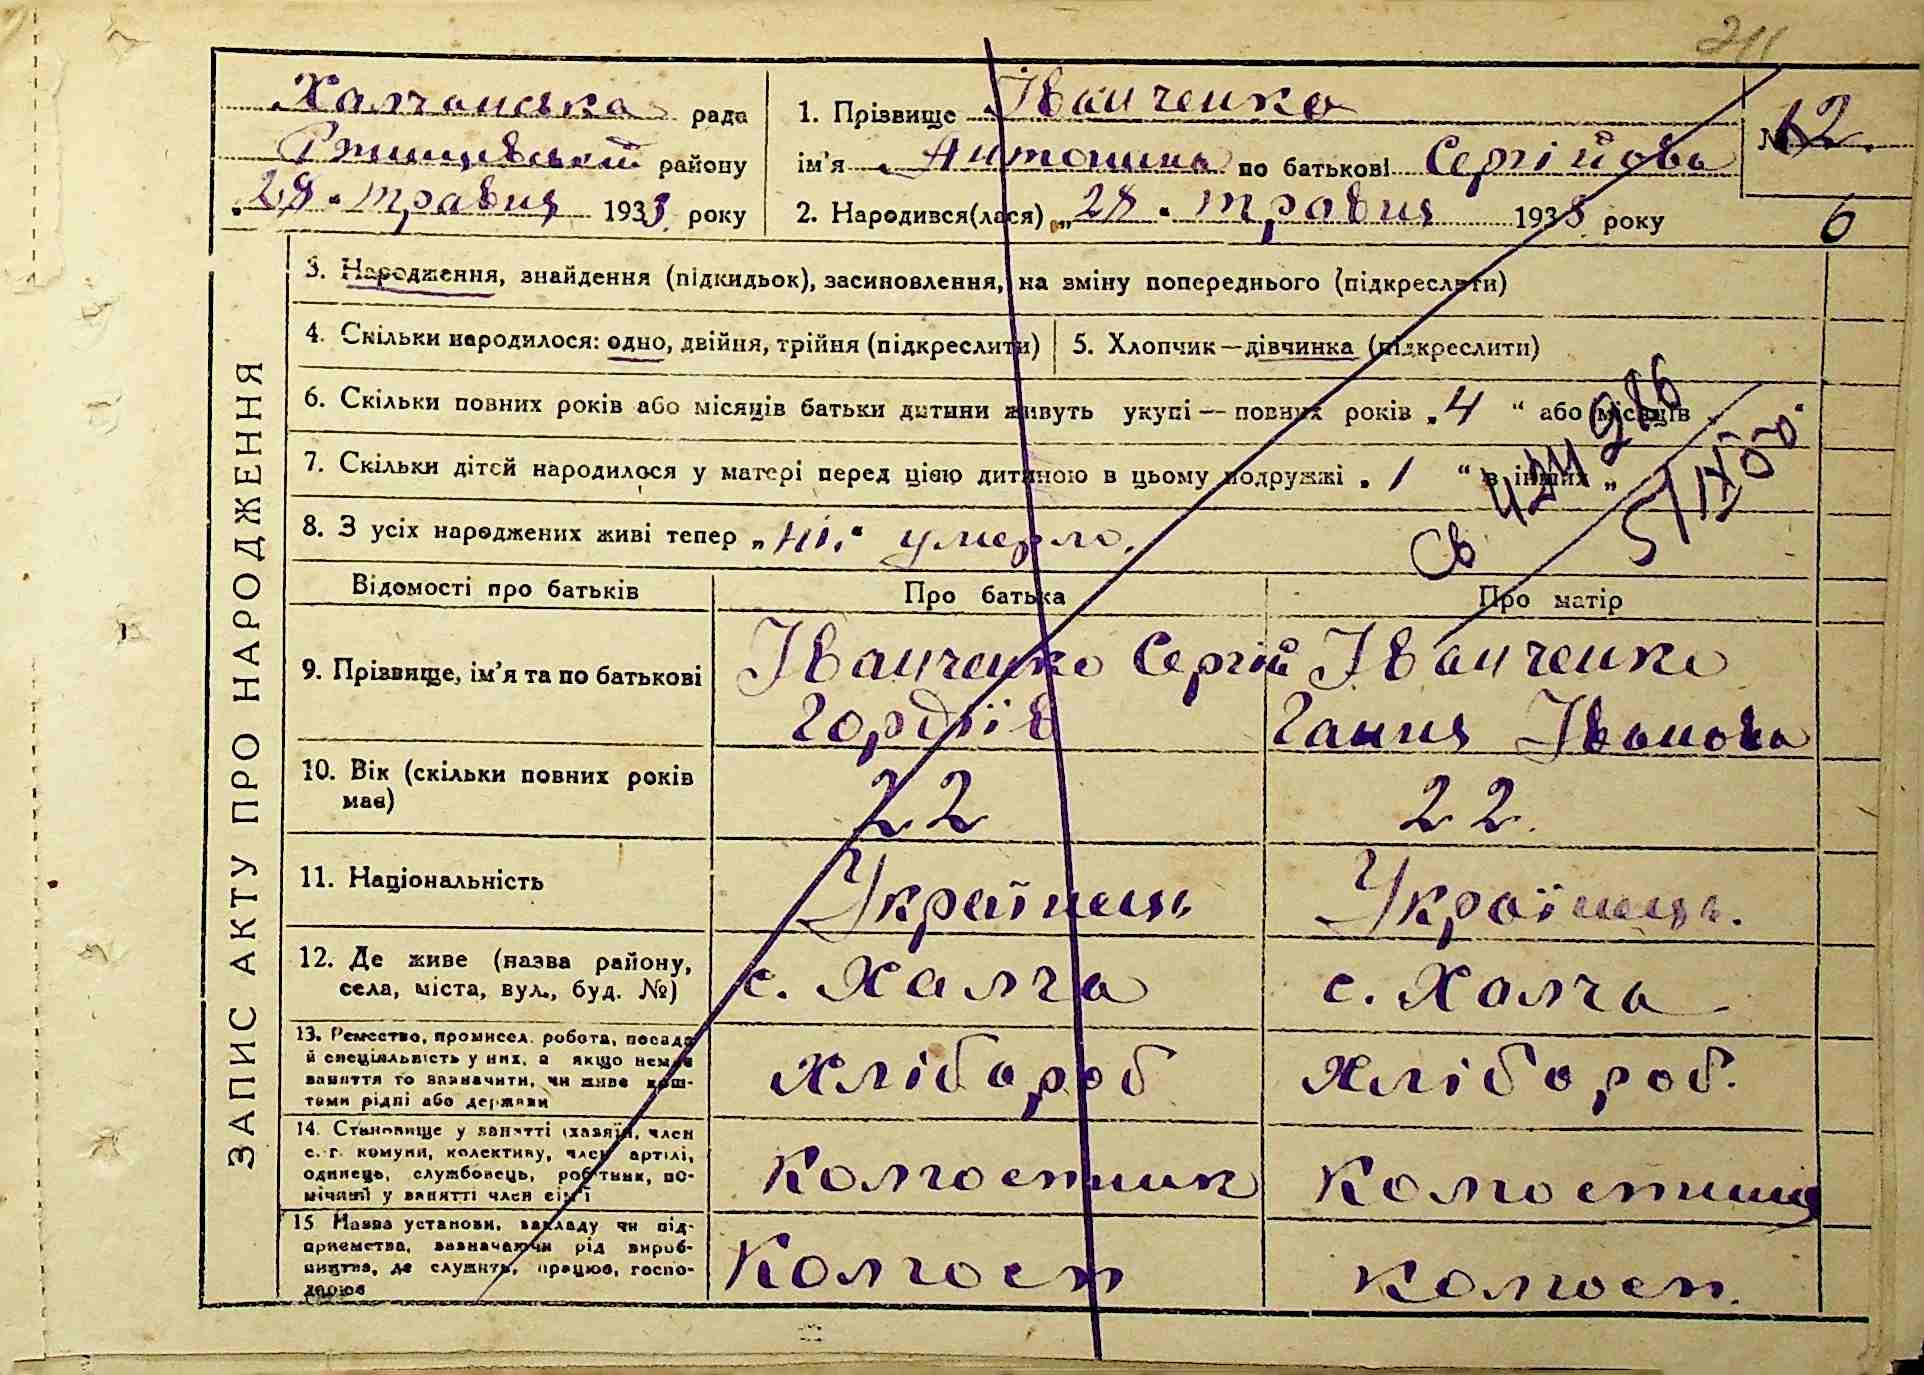 Халчанська рада
Ртищівський району
"28" травня 1933 року
1. Прізвище Іванченко
ім'я Антонина по батькові Сергійова
2. Народився(лася) "28" травня 1933 року
№ 12.
6
ЗАПИС АКТУ ПРО НАРОДЖЕННЯ
3. Народження, знайдення (підкидьок), засиновлення, на зміну попереднього (підкреслити)
4. Скільки народилося: одно, двійня, трійня (підкреслити)
5. Хлопчик—дівчинка (підкреслити)
6. Скільки повних років або місяців батьки дитини живуть укупі — повних років „4“ або місяців
7. Скільки дітей народилося у матері перед цією дитиною в цьому подружжі „1“ в інших „
8. З усіх народжених живі тепер „ні“ умерло.
Св
Відомості про батьків
Про батька
Про матір
9. Прізвище, ім'я та по батькові
Іванченко Сергій
Гордіїв
Іванченко
Гання Іванова
10. Вік (скільки повних років
має)
22
22.
11. Національність
Українець
Українець.
12. Де живе (назва району,
села, міста, вул., буд. №)
с. Халча
с. Халча
13. Ремество, промисел, робота, посада
й спеціяльність у них, а якщо немає
заняття то зазначити, чи живе кош-
тами рідні або держави
Хлібороб
Хлібороб.
14. Становище у занятті (хазяїн, член
с.-г. комуни, колективу, член артілі,
одинець, службовець, робітник, по-
мічний у занятті член сім'ї
Колгоспник
Колгоспниця
15 Назва установи, закладу чи під-
приємства, зазначаючи рід вироб-
ництва, де служить, працює, госпо-
дарює
Колгосп
Колгосп.